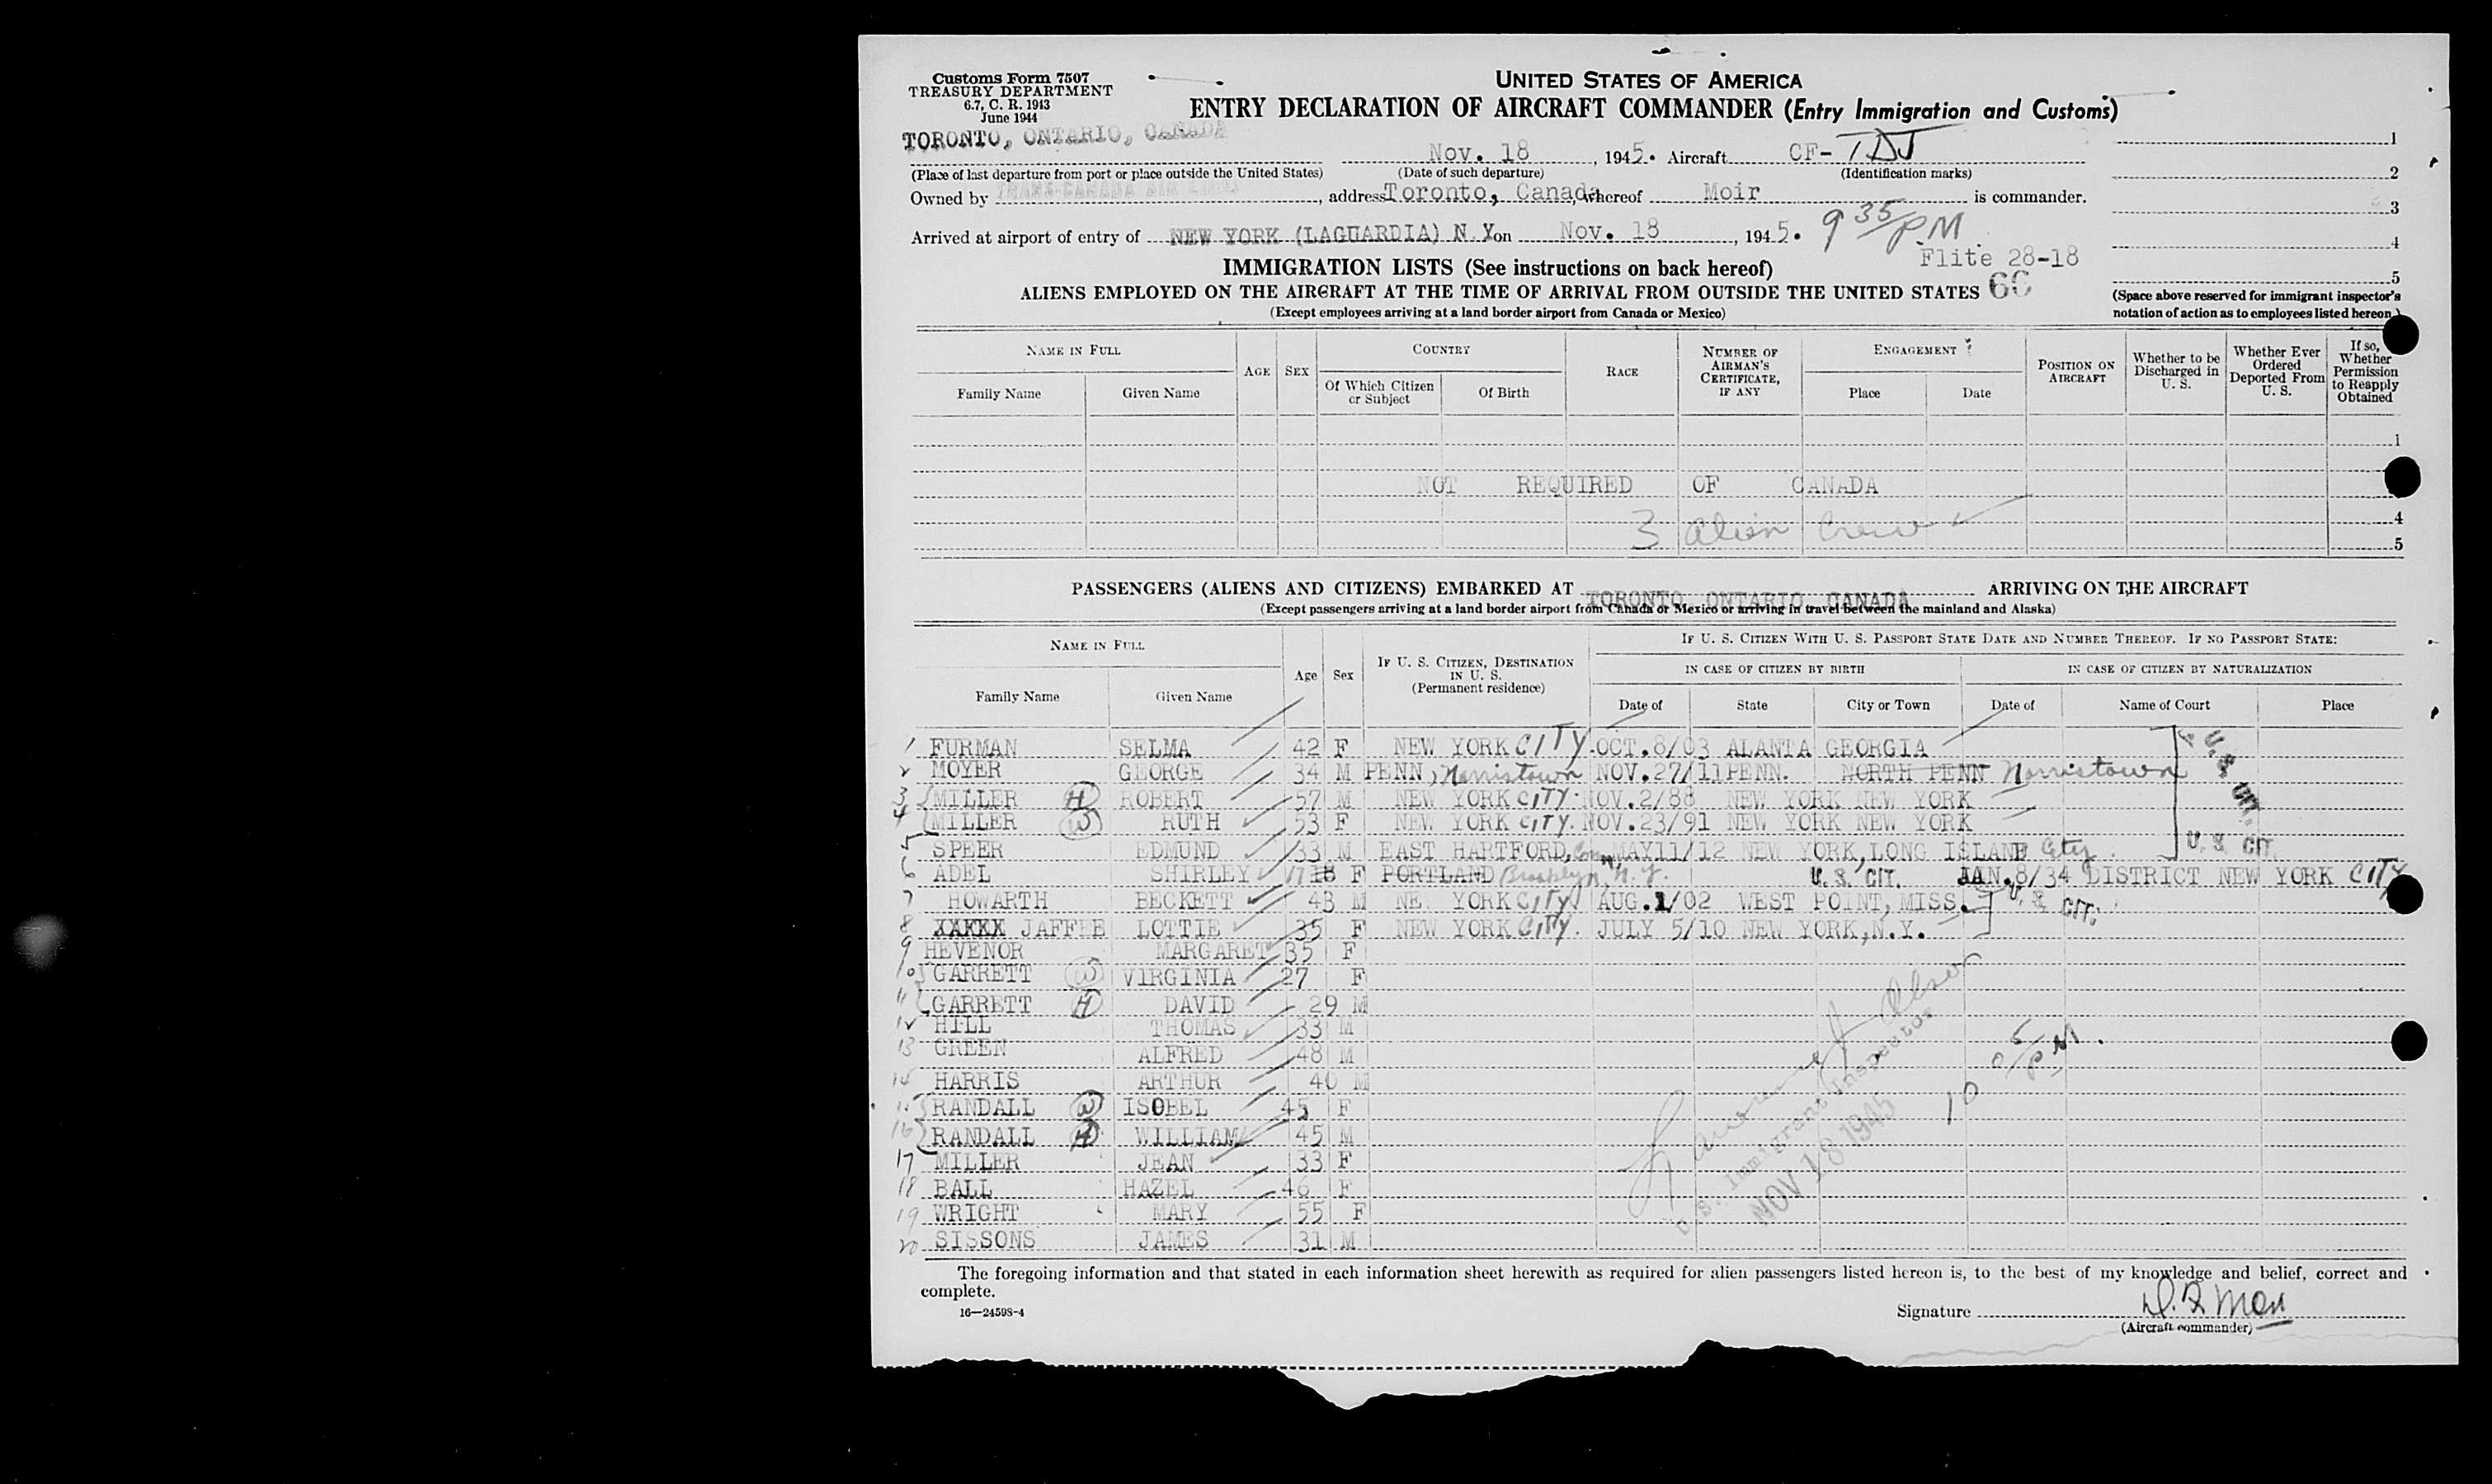 Customs Form 7507
TREASURY DEPARTMENT
6.7, C. R. 1943
June 1944
UNITED STATES OF AMERICA
ENTRY DECLARATION OF AIRCRAFT COMMANDER (Entry Immigration and Customs)
TORONTO, ONTARIO, CANADA
Nov. 18, 1945. Aircraft CF-TDJ
(Place of last departure from port or place outside the United States) (Date of such departure) (Identification marks)
Owned by TRANS-CANADA AIR LINES, address Toronto, Canada, whereof Moir is commander.
Arrived at airport of entry of NEW YORK (LAGUARDIA) N.Y. on Nov. 18, 1945. 9 35/PM.
Flite 28-18
1
2
3
4
5
(Space above reserved for immigrant inspector's notation of action as to employees listed hereon.)
IMMIGRATION LISTS (See instructions on back hereof)
ALIENS EMPLOYED ON THE AIRCRAFT AT THE TIME OF ARRIVAL FROM OUTSIDE THE UNITED STATES
(Except employees arriving at a land border airport from Canada or Mexico)
NAME IN FULL AGE SEX COUNTRY RACE NUMBER OF AIRMAN'S CERTIFICATE, IF ANY ENGAGEMENT POSITION ON AIRCRAFT Whether to be Discharged in U. S. Whether Ever Ordered Deported From U. S. If so, Whether Permission to Reapply Obtained
Family Name Given Name Of Which Citizen or Subject Of Birth Place Date
1
NOT REQUIRED OF CANADA
3 alien Crew 4
5
PASSENGERS (ALIENS AND CITIZENS) EMBARKED AT TORONTO ONTARIO CANADA ARRIVING ON THE AIRCRAFT
(Except passengers arriving at a land border airport from Canada or Mexico or arriving in travel between the mainland and Alaska)
NAME IN FULL Age Sex IF U. S. CITIZEN, DESTINATION IN U. S. (Permanent residence) IF U. S. CITIZEN WITH U. S. PASSPORT STATE DATE AND NUMBER THEREOF. IF NO PASSPORT STATE:
IN CASE OF CITIZEN BY BIRTH IN CASE OF CITIZEN BY NATURALIZATION
Family Name Given Name Date of State City or Town Date of Name of Court Place
1 FURMAN SELMA 42 F NEW YORK CITY. OCT.8/03 ALANTA GEORGIA U. S. CIT.
2 MOYER GEORGE 34 M PENN, Norristown NOV.27/11 PENN. NORTH PENN Norristown
3 MILLER H ROBERT 57 M NEW YORK CITY. NOV.2/88 NEW YORK NEW YORK
4 MILLER W RUTH 53 F NEW YORK CITY. NOV.23/91 NEW YORK NEW YORK
5 SPEER EDMUND 33 M EAST HARTFORD, Conn MAY11/12 NEW YORK, LONG ISLAND City. U. S. CIT.
6 ADEL SHIRLEY 17 18 F PORTLAND Brooklyn, N.Y. U. S. CIT. JAN.8/34 DISTRICT NEW YORK CITY
7 HOWARTH BECKETT 43 M NE YORK CITY AUG.1/02 WEST POINT, MISS. U. S. CIT.
8 XXXXX JAFFEE LOTTIE 35 F NEW YORK CITY. JULY 5/10 NEW YORK, N.Y.
9 HEVENOR MARGARET 35 F
10 GARRETT W VIRGINIA 27 F
11 GARRETT H DAVID 29 M
12 HILL THOMAS 33 M
13 GREEN ALFRED 48 M
14 HARRIS ARTHUR 40 M
15 RANDALL W ISOBEL 45 F
16 RANDALL H WILLIAM 45 M
17 MILLER JEAN 33 F
18 BALL HAZEL 46 F
19 WRIGHT MARY 55 F
20 SISSONS JAMES 31 M
U. S. Immigrant Inspector
NOV 18 1945
10 05/PM.
The foregoing information and that stated in each information sheet herewith as required for alien passengers listed hereon is, to the best of my knowledge and belief, correct and
complete.
16—24598-4
Signature
(Aircraft commander)